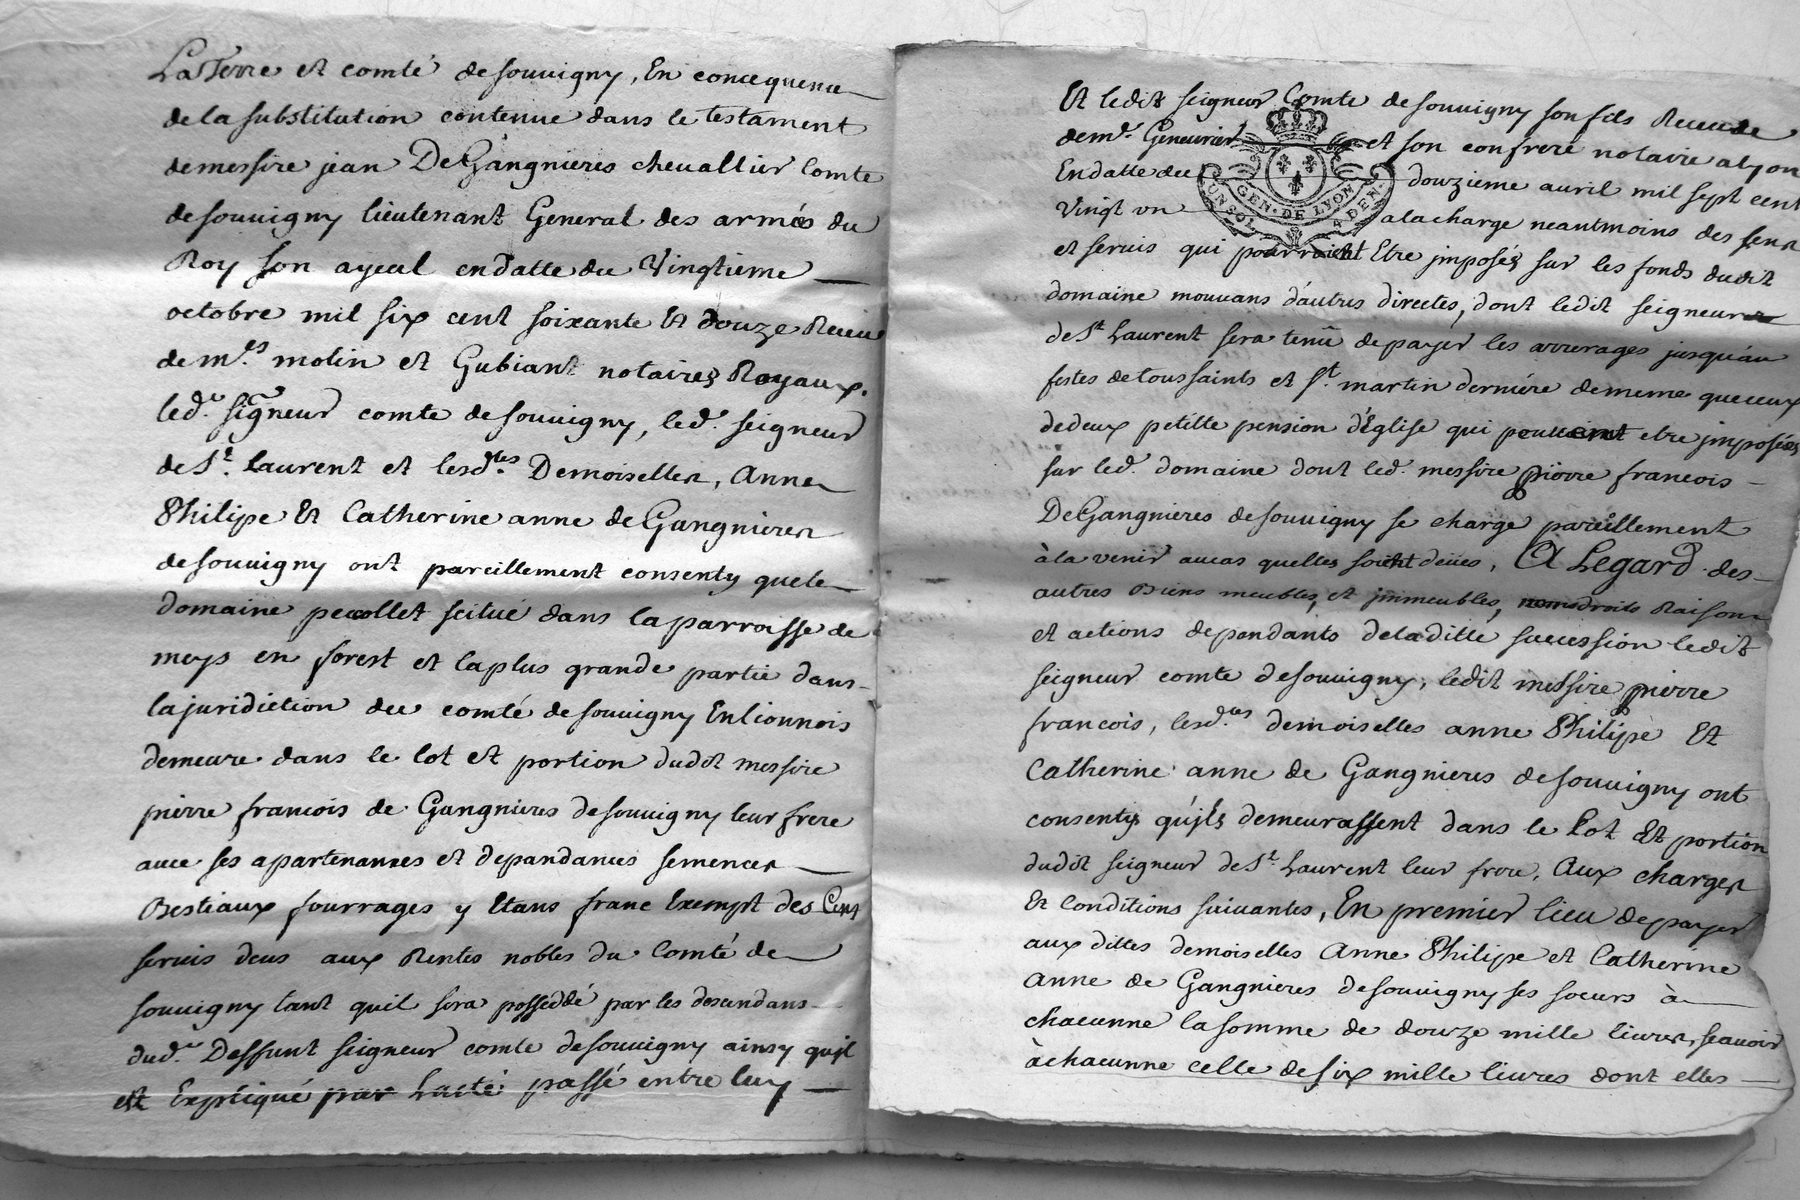 La Terre et comté de souvigny, En concequence
de la substitution contenue dans le testament
de messire jean De Gangnieres chevallier Comte
de souvigny lieutenant General des armées du
Roy son ayeul en datte du Vingtieme
octobre mil six cent soixante et douze Receu
de m.es molin et Gubiant notaires Royaux.
led. seigneur comte de souvigny, led. seigneur
de St. Laurent et lesd.tes Demoiselles, Anne
Philipe Et Catherine anne de Gangnieres
de souvigny ont pareillement consenty que le
domaine pecollet scitué dans la parroisse de
meys en forest et la plus grande partie dans
la juridiction du comté de souvigny En lionnois
demeure dans le lot et portion dudit messire
pierre francois de Gangnieres de souvigny leur frere
avec ses apartenances et depandances semences
Bestiaux fourrages y Etans franc Exempt des Cens
servis deus aux Rentes nobles du Comté de
souvigny tant quil sera posseddé par les descendans
dud. Deffunt seigneur comte de souvigny ainsy quil
est Expliqué par Lacte passé entre luy
Et ledit seigneur Comte de souvigny son fils Receu de
de m.e Genevrier et son confrere notaire a lyon
En datte du douzieme avril mil sept cent
Vingt un a la charge neantmoins des sens
et servis qui pourroient Etre jmposés sur les fonds dudit
domaine mouvans d'autres directes, dont ledit seigneur
de St. Laurent sera tenû de payer les arrerages jusqu'au
festes de toussaints et St. martin derniére de meme que ceux
de deux petitte pension d'Eglise qui peuvent etre jmposées
sur led. domaine dont led. messire pierre francois
De Gangnieres de souvigny se charge pareillement
à la venir aucas quelles soient deües, A Legard des
autres Biens meubles, et jmmeubles, noms droits Raisons
et actions dependants de laditte succession ledit
seigneur comte de souvigny, ledit messire pierre
francois, lesd.tes demoiselles anne Philipe Et
Catherine anne de Gangnieres de souvigny ont
consentis qu'jls demeurassent dans le Lot Et portion
dudit seigneur de St. Laurent leur frere, Aux charges
Et Conditions suivantes, En premier lieu de payer
aux dittes demoiselles Anne Philipe et Catherine
Anne de Gangnieres de souvigny ses soeurs à
chacunne la somme de douze mille livres, scavoir
à chacunne celle de six mille livres dont elles
GEN. DE LYON